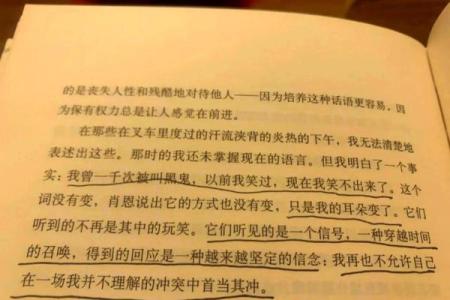 的是丧失人性和残酷地对待他人——因为培养这种话语更容易，因
为保有权力总是让人感觉在前进。
在那些在叉车里度过的汗流浃背的炎热的下午，我无法清楚地
表述出这些。那时的我还未掌握现在的语言。但我明白了一个事
实：我曾一千次被叫黑鬼，以前我笑过，现在我笑不出来了。这个
词没有变，肖恩说出它的方式也没有变，只是我的耳朵变了。它们
听到的不再是其中的玩笑。它们听见的是一个信号，一种穿越时间
的召唤，得到的回应是一种越来越坚定的信念：我再也不允许自己
在一场我并不理解的冲突中首当其冲。